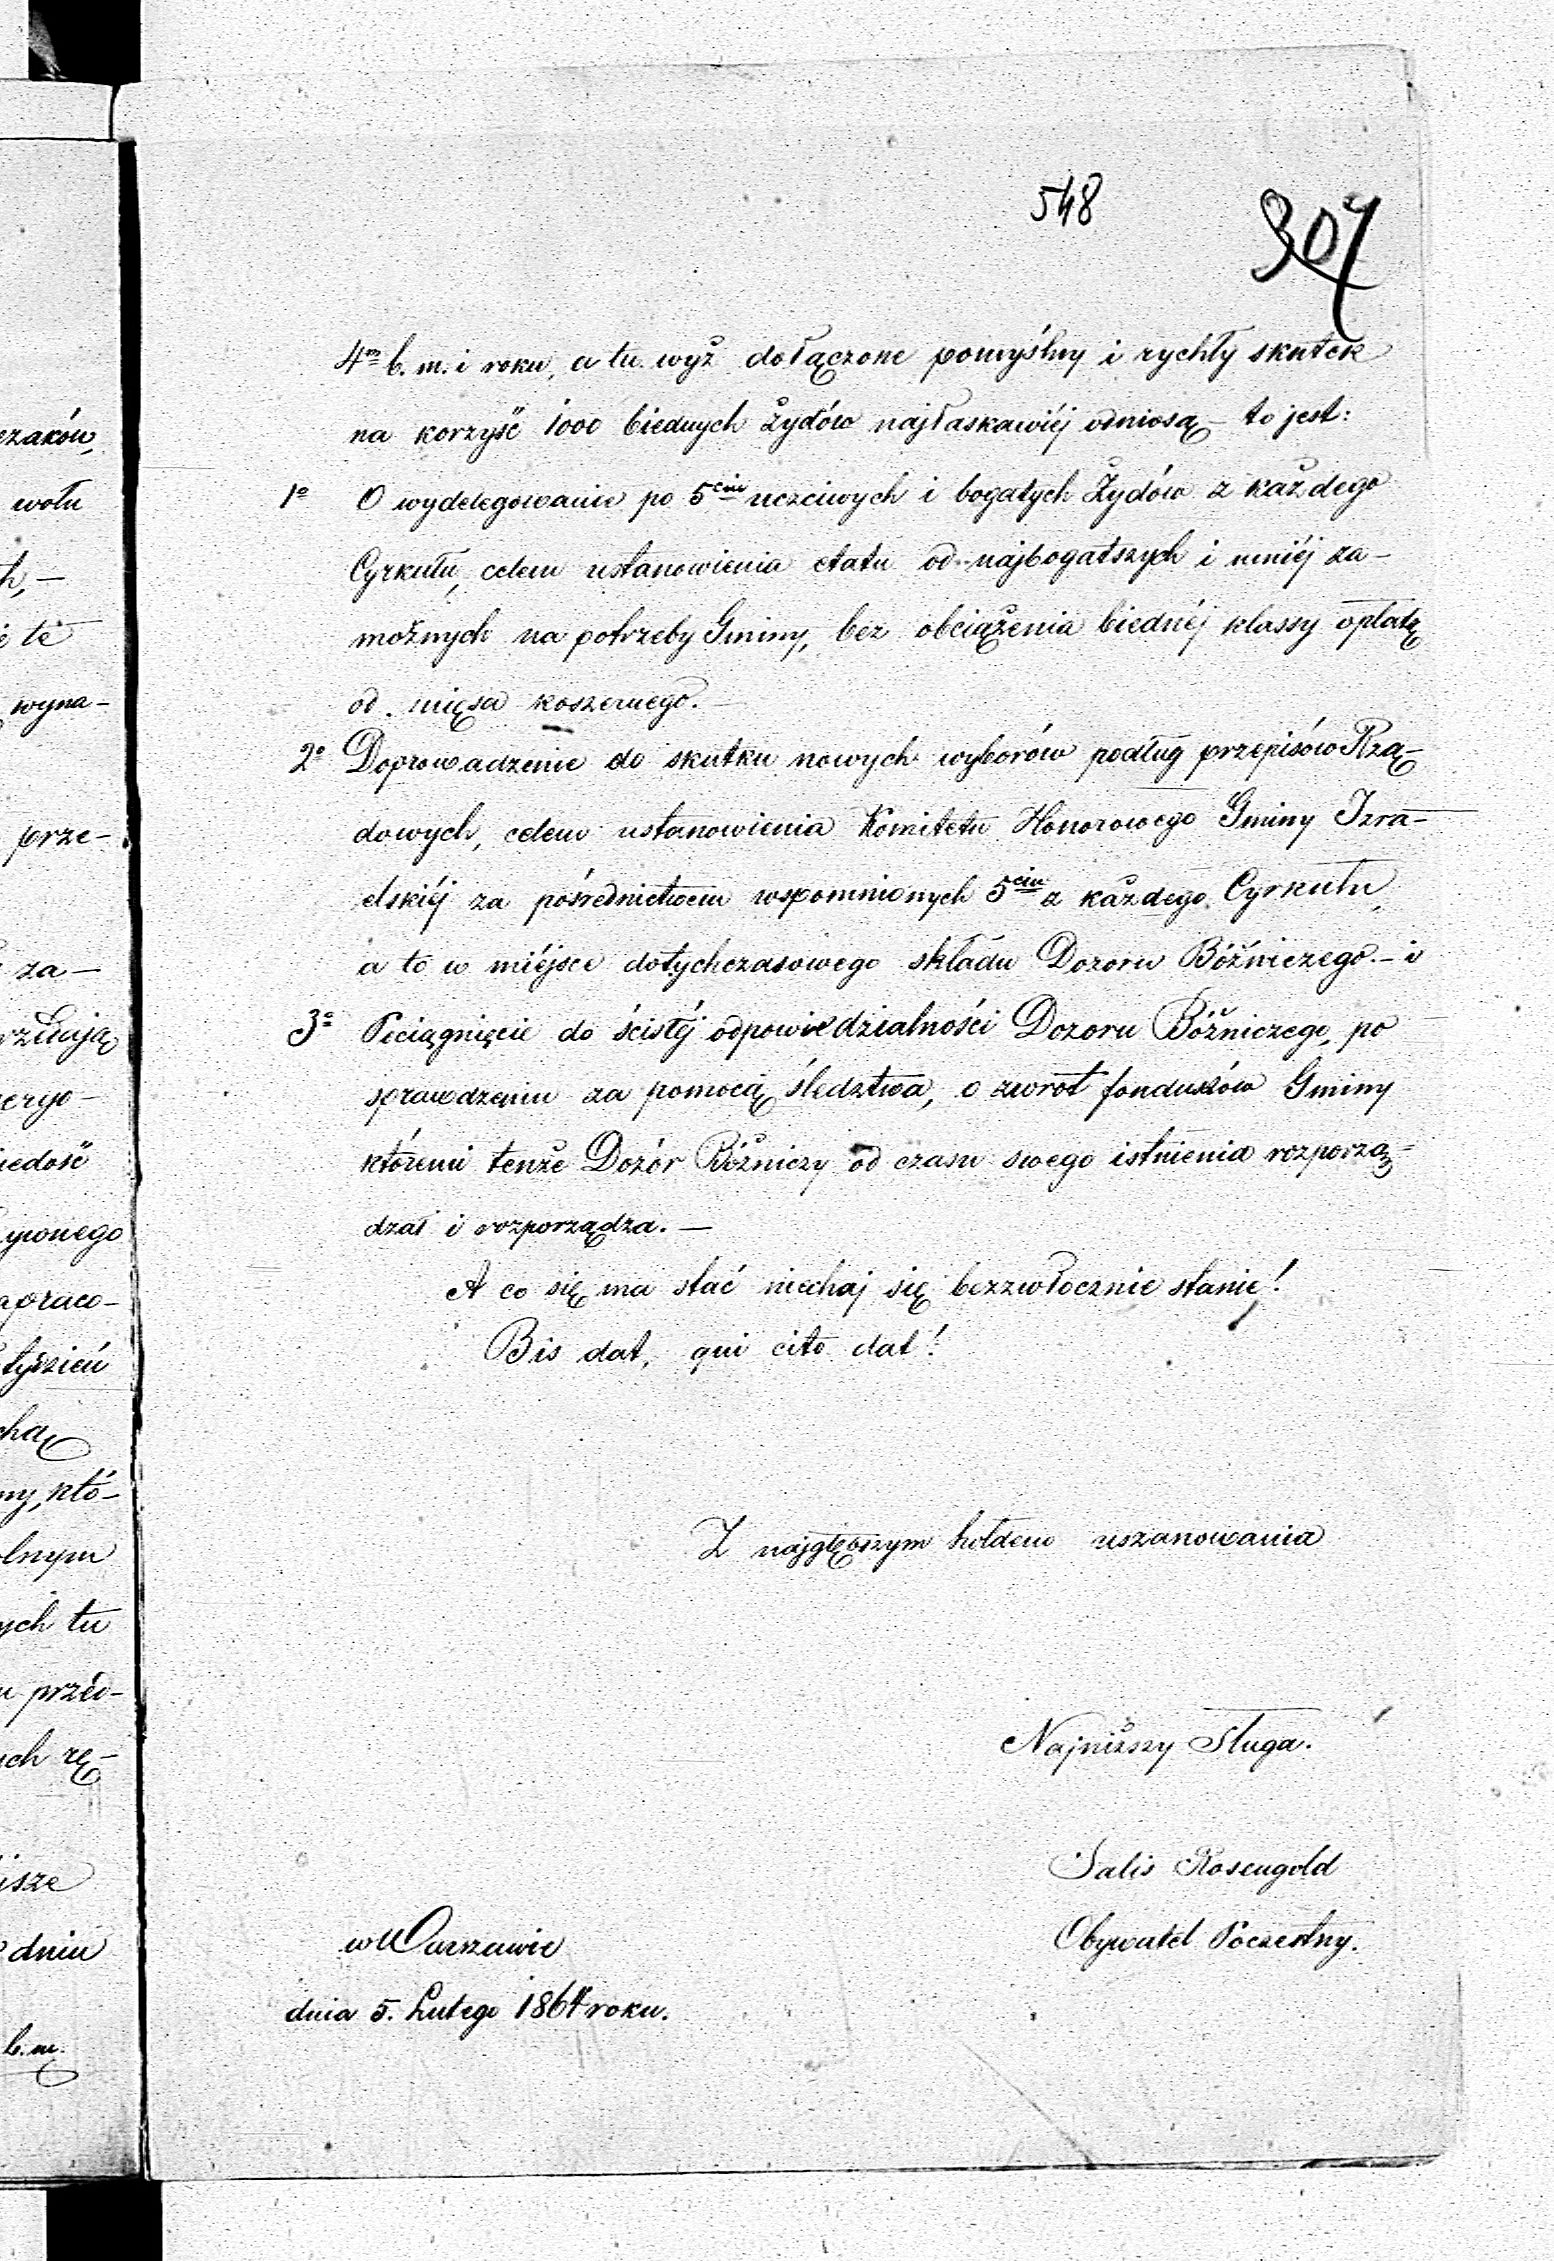 548
307
4m b. m. i roku, a tu wyż dołączone pomyślny i rychły skutek
na korzyść 1000 biednych żydów najłaskawiéj odniosą – to jest:
1o O wydelegowanie po 5ciu uczciwych i bogatych Żydów z każdego
Cyrkułu, celem ustanowienia etatu od najbogatszych i mniéj za-
możnych na potrzeby Gminy, bez obciążenia biednéj klassy opłatą
od mięsa koszernego. –
2o Doprowadzenie do skutku nowych wyborów podług przepisów Rzą-
dowych, celem ustanowienia Komitetu Honorowego Gminy Izra-
elskiéj za pośrednictwem wspomnionych 5ciu z każdego Cyrkułu,
a to w miéjsce dotychczasowego składu Dozoru Bóżniczego. – i
3o Pociągnięcie do ścisłéj odpowiedzialności Dozoru Bóżniczego, po
sprawdzeniu za pomocą śledztwa, o zwrot funduszów Gminy
któremi tenże Dozór Bóżniczy od czasu swego istnienia rozporzą-
dzał i rozporządza. –
A co się ma stać niechaj się bezzwłocznie stanie!
Bis dat, qui cito dat!
Z najgłębszym hołdem uszanowania
Najniższy Sługa.
Salis Rosengold
Obywatel Poczestny.
w Warszawie
dnia 5. Lutego 1864 roku.
wołu
te
wyna-
prze-
za-
dniu
b. m.